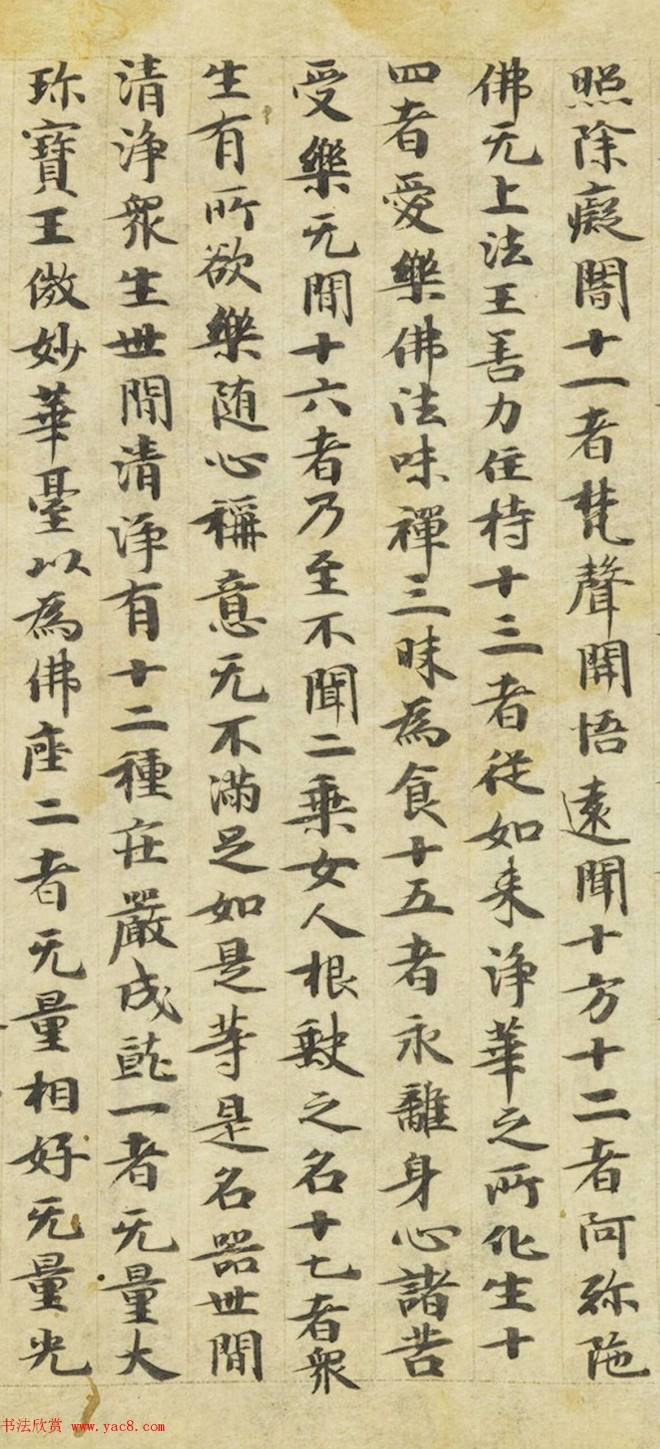 照除癡闇十一者梵聲開悟遠聞十方十二者阿弥陁
佛无上法王善力住持十三者從如来淨華之所化生十
四者愛樂佛法味禪三昧為食十五者永離身心諸苦
受樂无閒十六者乃至不聞二乗女人根缺之名十七者衆
生有所欲樂随心稱意无不滿足如是等是名器世間
清淨衆生世間清淨有十二種莊嚴成就一者无量大
珎寶王微妙華臺以為佛座二者无量相好无量光
书法欣赏 www.yac8.com